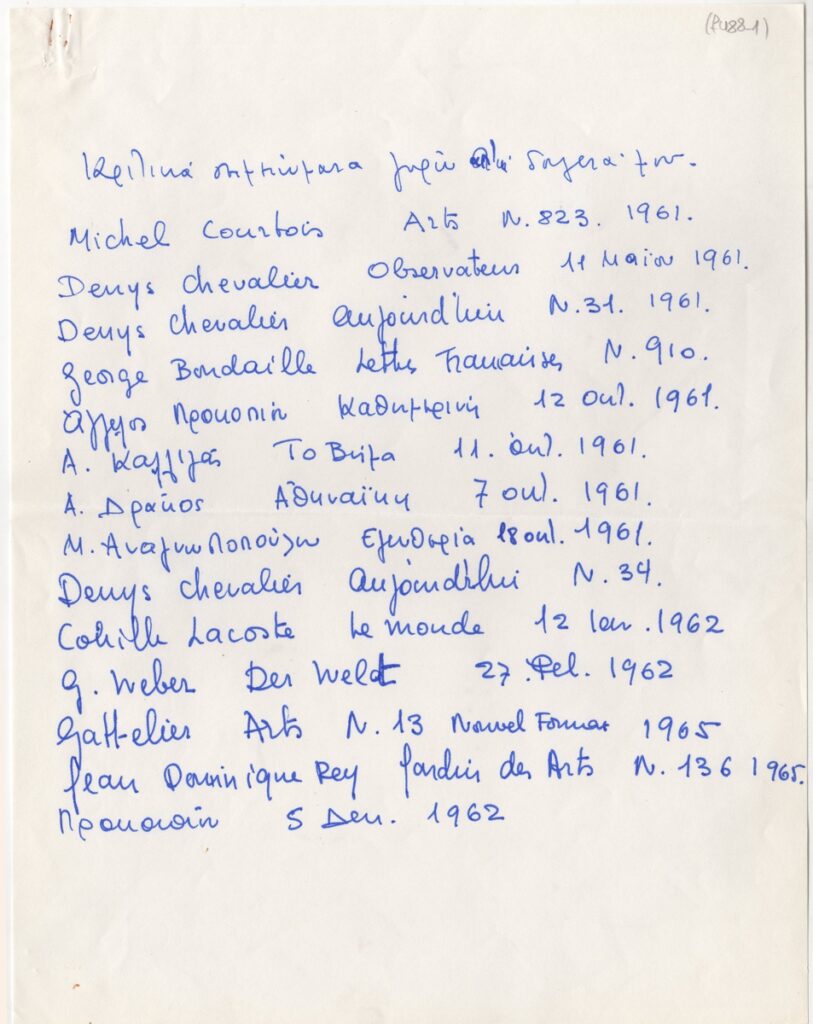 Κριτικά σημειώματα
Michel Courtois Arts N. 823. 1961.
Denys Chevalier Observateur 11 Μαΐου 1961.
Denys Chevalier Aujourd'hui N. 31. 1961.
George Boudaille Lettres Francaises N. 910.
Άγγελος Προκοπίου Καθημερινή 12 Οκτ. 1961.
Α. Καλλιγάς Το Βήμα 11. Οκτ. 1961.
Α. Δράκος Αθηναϊκή 7 Οκτ. 1961.
Μ. Αναγνωστοπούλου Ελευθερία 18 Οκτ. 1961.
Denys Chevalier Aujourd'hui N. 34.
Lacoste Le Monde 12 Ιαν. 1962
G. Weber Der Welt 27 Φεβ. 1962
Arts N. 13 Nouvel Format 1965
Jean Dominique Rey Jardin des Arts N. 136 1965.
Προκοπίου 5 Δεκ. 1962